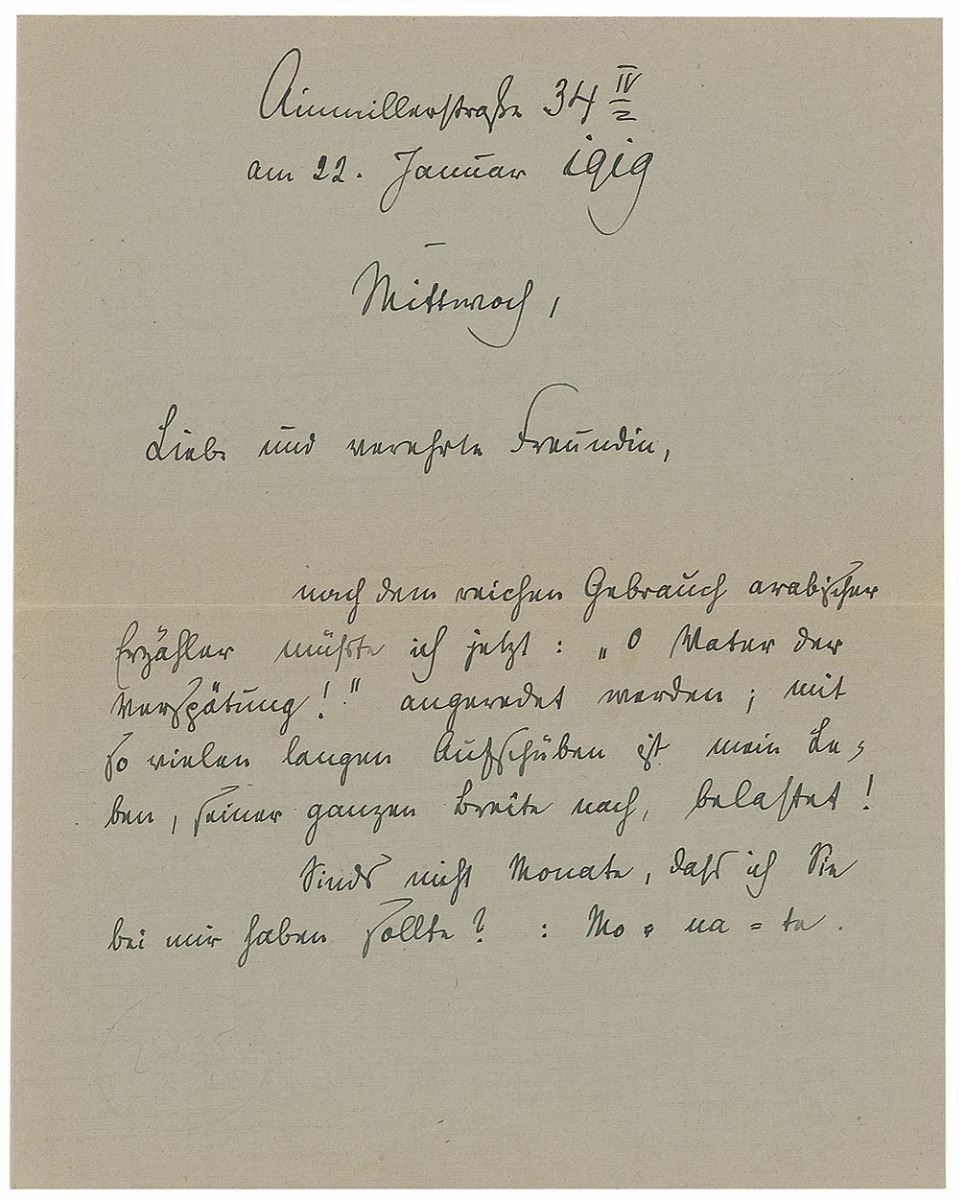 Ainmillerstraße 34 IV
am 22. Januar 1919
Mittwoch,
Liebe und verehrte Freundin,
nach dem reichen Gebrauch arabischer
Erzähler müßte ich jetzt : „O Vater der
Verspätung!" angeredet werden ; mit
so vielen langen Aufschüben ist mein Le=
ben, seiner ganzen Breite nach, belastet!
Sinds nicht Monate, daß ich Sie
bei mir haben sollte? : Mo = na = te .